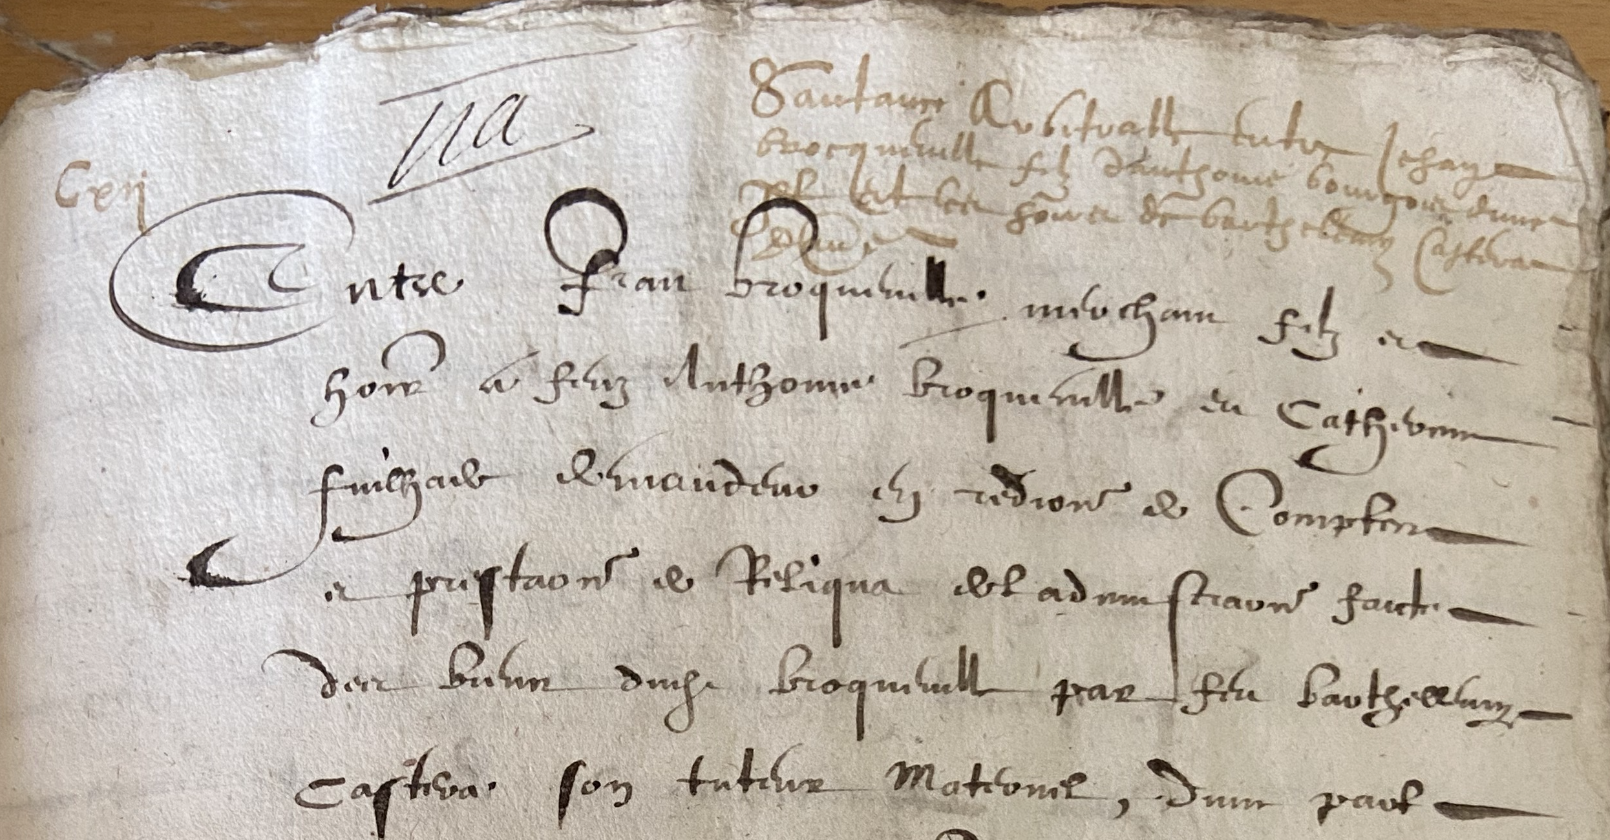 Santance Arbitralle entre Jehan
brocqueville filz d'anthoine bourgois dune
Pt et les hoirs de barthelemy Castera
Cxij
Entre Jean broqueville merchant filz et
hoir a feuz Anthoine broqueville et Catherine
fuilhade demandeur en redion de Comptes
et prestaon de Reliqua del admnistraon faicte
des biens dudict broqueville par feu barthellemy
Castera son tuteur Maternel, dune part